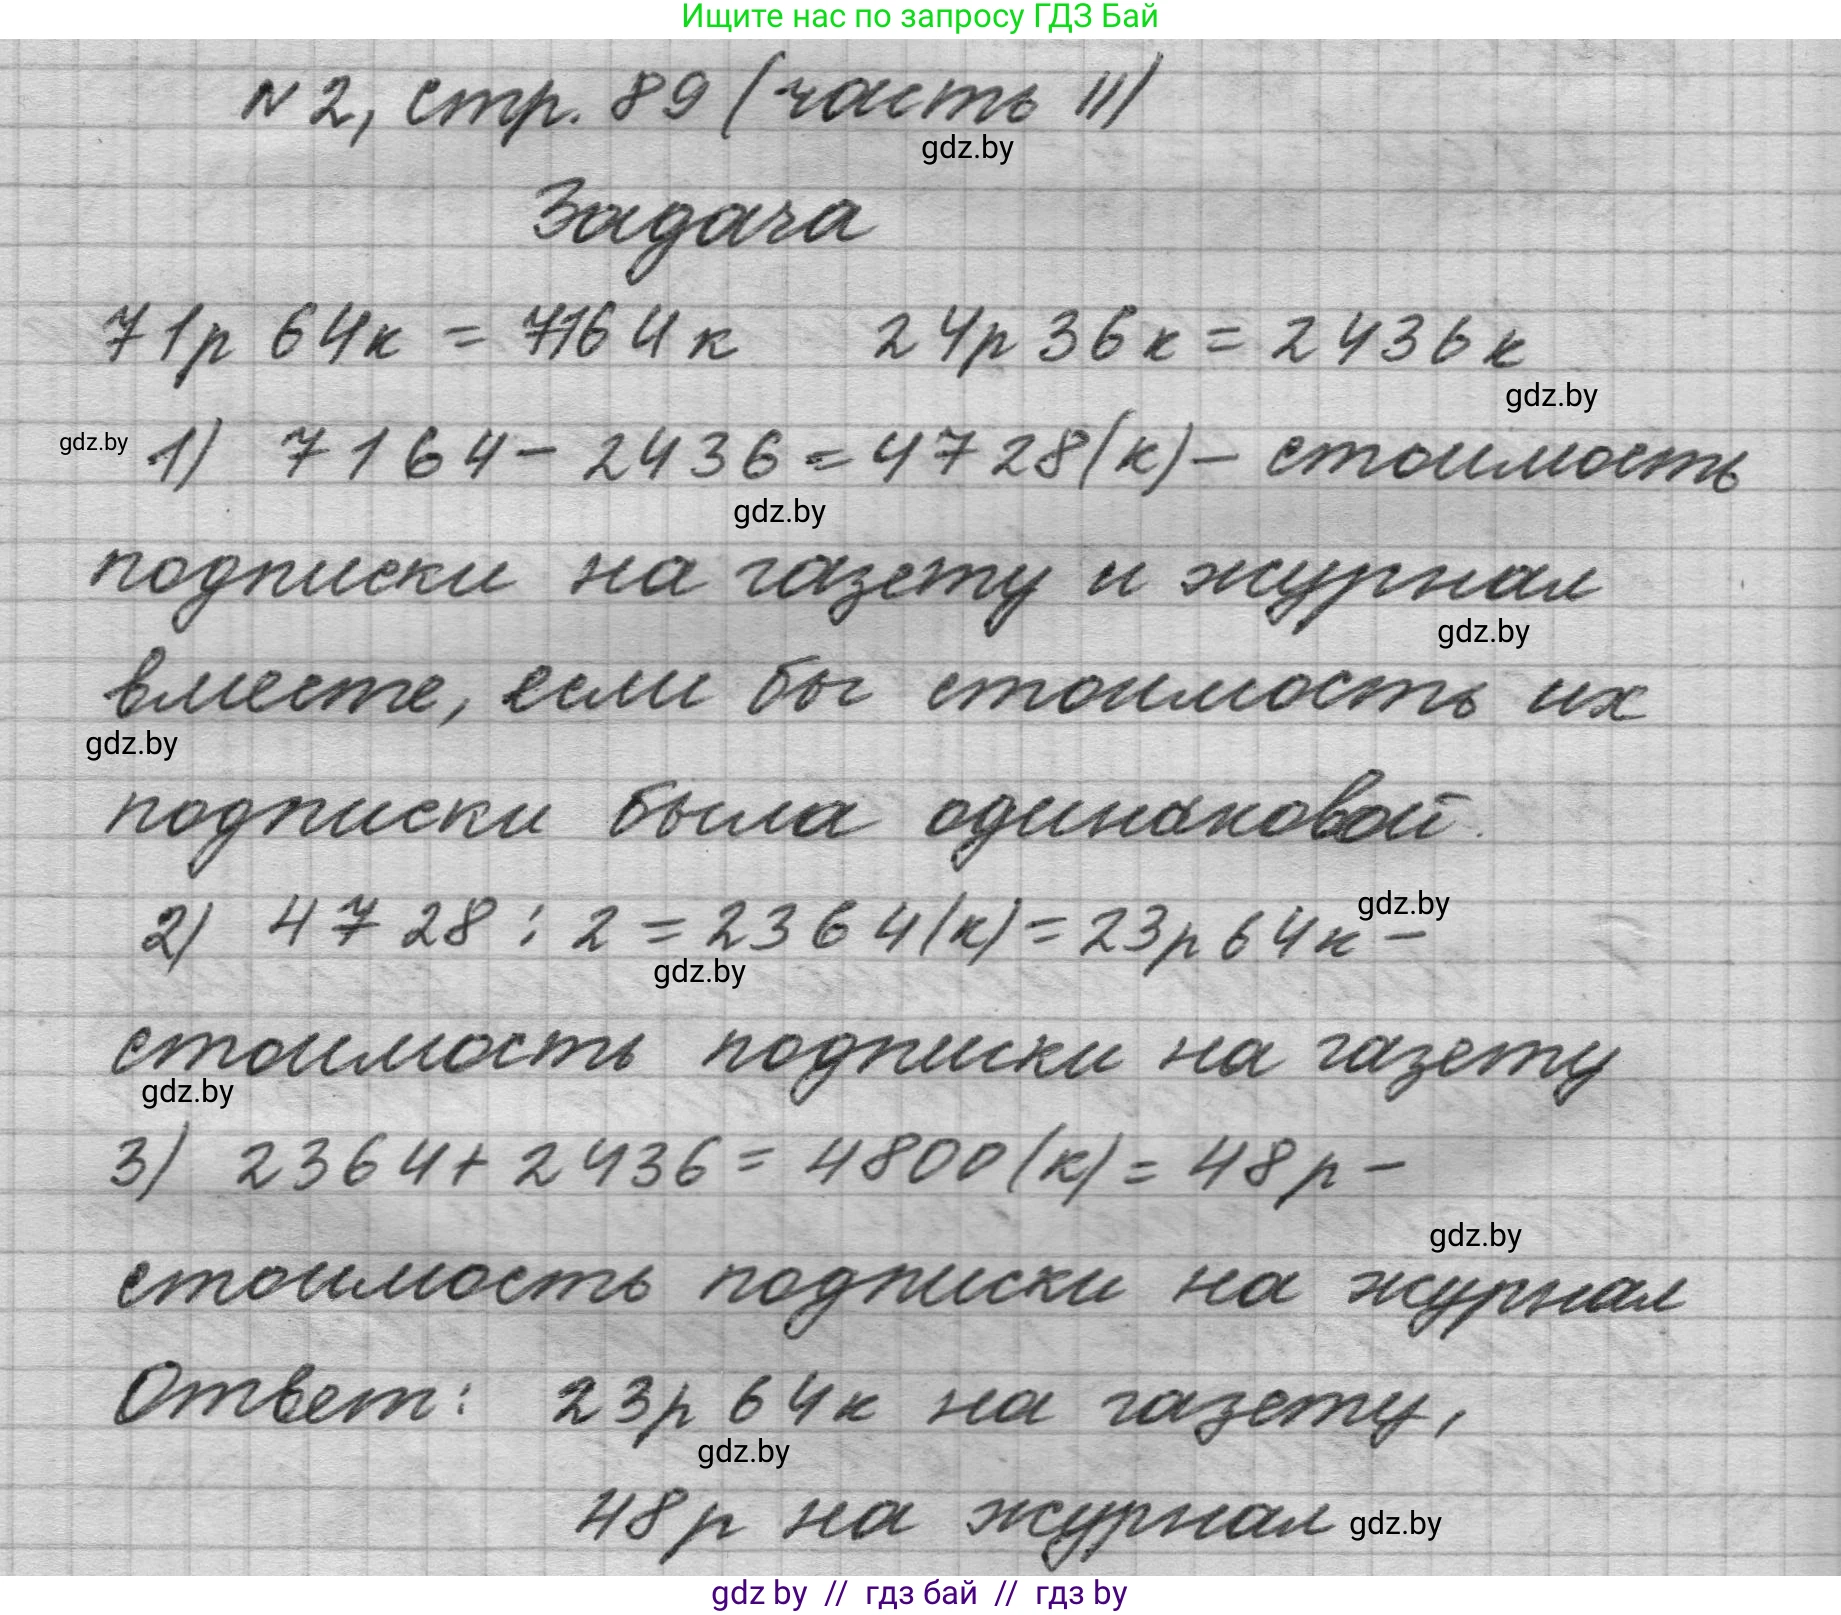 Ищите нас по запросу ГДЗ Бай
N 2, стр. 89 (часть II)
gdz.by
Задача
71р 64к = 7164к 24р 36к = 2436к
gdz.by
gdz.by 1) 7164 - 2436 = 4728(к) - стоимость
gdz.by
подписки на газету и журнал
gdz.by
вместе, если бы стоимость их
gdz.by
подписки была одинаковой.
2) 4728 : 2 = 2364(к) = 23р 64к - gdz.by
gdz.by
стоимость подписки на газету
gdz.by
3) 2364 + 2436 = 4800(к) = 48р -
gdz.by
стоимость подписки на журнал
Ответ: 23р 64к на газету,
gdz.by
48р на журнал gdz.by
gdz by // гдз бай // гдз by